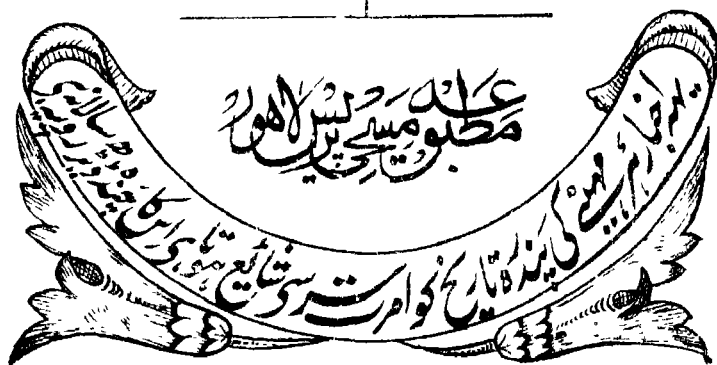 مطبوعہ مسیحی پریس لاہور
یہہ اخبار ہر مہینے کی پندرہ تاریخ کو امرت سر سی شائع ہوتا ہی اس کا چندہ سالانہ